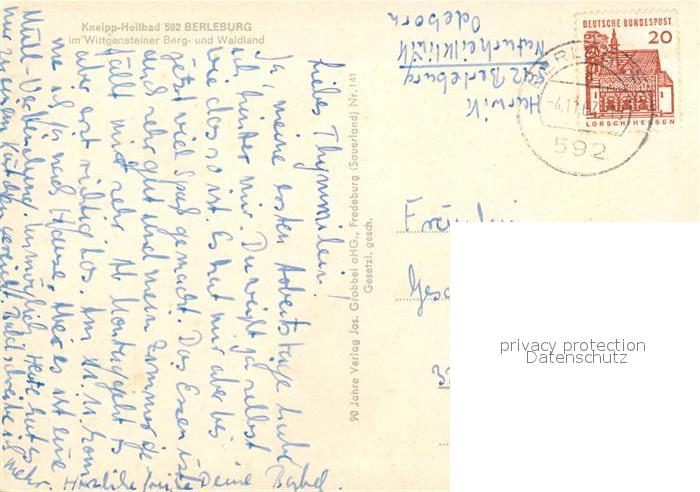 Kneipp-Heilbad 592 BERLEBURG
im Wittgensteiner Berg- und Waldland
Liebes Thymmilein!
Ja, meine ersten Arbeitstage habe
ich hinter mir. Du weißt ja selbst
wie das so ist. Es hat mir aber bis
jetzt viel Spaß gemacht. Das Essen ist
und sehr gut und mein Zimmer ge-
fällt mir sehr. Ab Montag geht's
aber erst richtig los. Am 11.11. kom
me ich ja nach Hause, aber es ist eine
Müll-Verbindung. Unmöglich. Heute
nur zu einem Kärtchen gereicht. Bald schreibe ich
mehr. Herzliche Grüße Deine Bärbel.
90 Jahre Verlag Jos. Grobbel oHG., Fredeburg (Sauerland) Nr. 141
Gesetzl. gesch.
592 Berleburg
Naturheilklinik
Odeborn
DEUTSCHE BUNDESPOST
20
LORSCH/HESSEN
592
Fräulein
privacy protection
Datenschutz